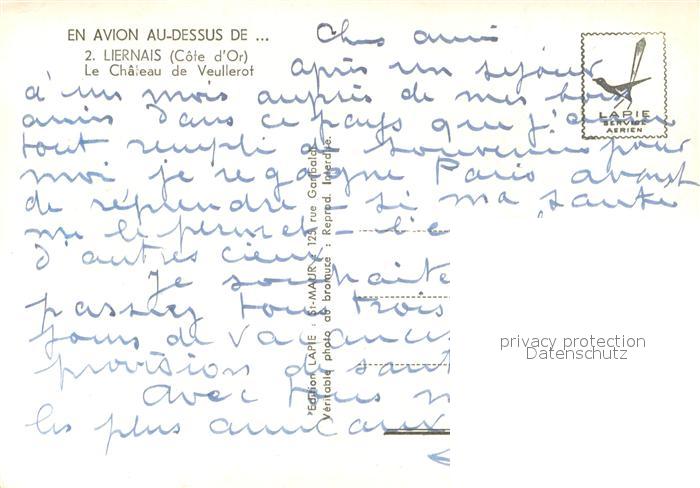 EN AVION AU-DESSUS DE ...
2. LIERNAIS (Côte d'Or)
Le Château de Veullerot
LAPIE
SERVICE
AERIEN
Chers amis
après un séjour
d'un mois auprès de mes bons
amis dans ce pays que j'aime
tout rempli de souvenirs pour
moi je regagne Paris avant
de reprendre – si ma santé
me le permet –
d'autres cieux.
Je souhaite
passiez tous trois
jours de vacances
provision de sant
Avec tous m
les plus amicaux
Edition LAPIE : St-MAUR - 125, rue Garibaldi
Véritable photo au bromure : Reprod. Interdite.
privacy protection
Datenschutz